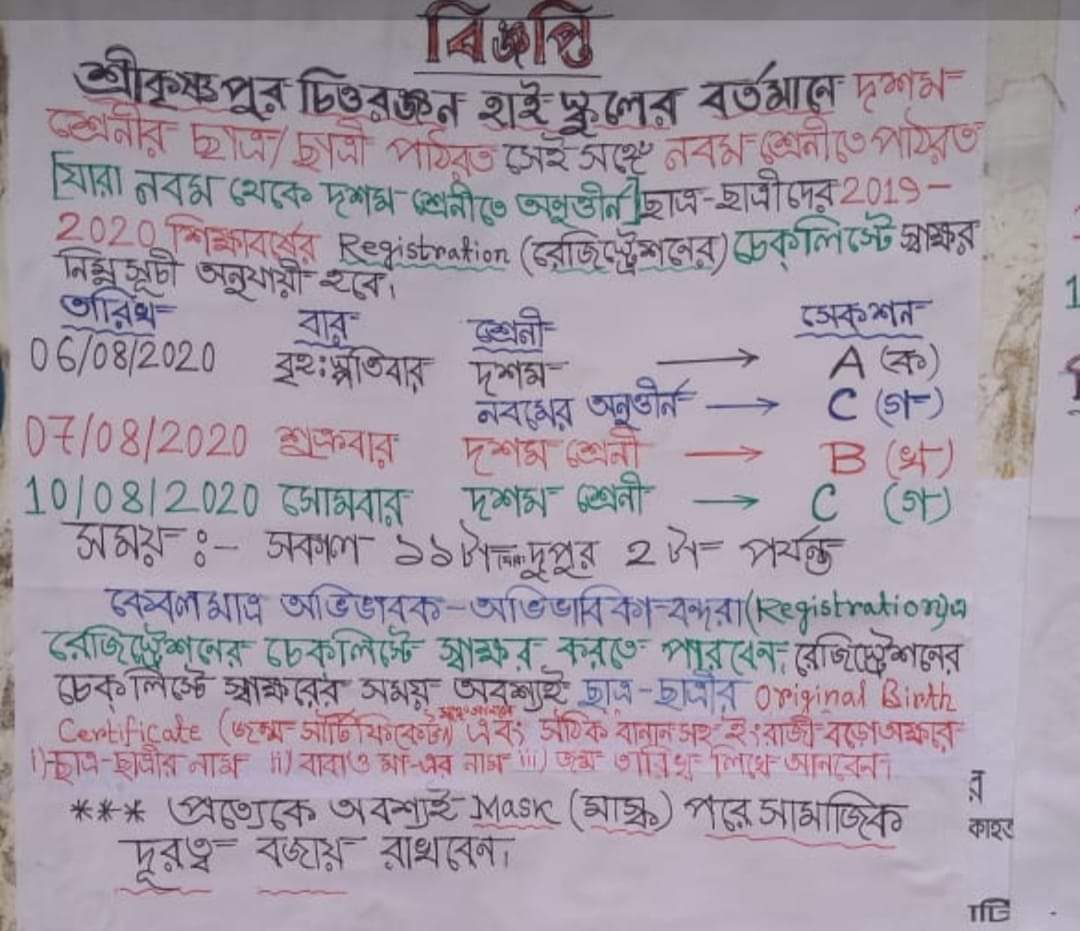 বিজ্ঞপ্তি
শ্রীকৃষ্ণপুর চিত্তরঞ্জন হাই স্কুলের বর্তমানে দশম
শ্রেনীর ছাত্র/ছাত্রী পাঠরত সেই সঙ্গে নবম শ্রেনীতে পাঠরত
[যারা নবম থেকে দশম শ্রেনীতে অনুত্তীর্ন] ছাত্র-ছাত্রীদের 2019-
2020 শিক্ষাবর্ষের Registration (রেজিস্ট্রেশনের) চেক্‌লিস্টে স্বাক্ষর
নিম্নসূচী অনুযায়ী হবে।
তারিখ বার শ্রেনী সেকশন
06/08/2020 বৃহঃস্পতিবার দশম → A (ক)
নবমের অনুত্তীর্ন → C (গ)
07/08/2020 শুক্রবার দশম শ্রেনী → B (খ)
10/08/2020 সোমবার দশম শ্রেনী → C (গ)
সময় :- সকাল ১১টা দুপুর 2 টা পর্যন্ত
কেবলমাত্র অভিভাবক-অভিভাবিকা বন্দরা (Registration)এ
রেজিস্ট্রেশনের চেকলিস্টে স্বাক্ষর করতে পারবেন, রেজিস্ট্রেশনের
চেক্‌লিস্টে স্বাক্ষরের সময় অবশ্যই ছাত্র-ছাত্রীর Original Birth
Certificate (জন্ম সার্টিফিকেট) এবং সঠিক বানান সহ ইংরাজী বড়ো অক্ষরে
i) ছাত্র-ছাত্রীর নাম ii) বাবা ও মা-এর নাম iii) জন্ম তারিখ লিখে আনবেন।
*** প্রত্যেকে অবশ্যই Mask (মাস্ক) পরে সামাজিক
দূরত্ব বজায় রাখবেন।